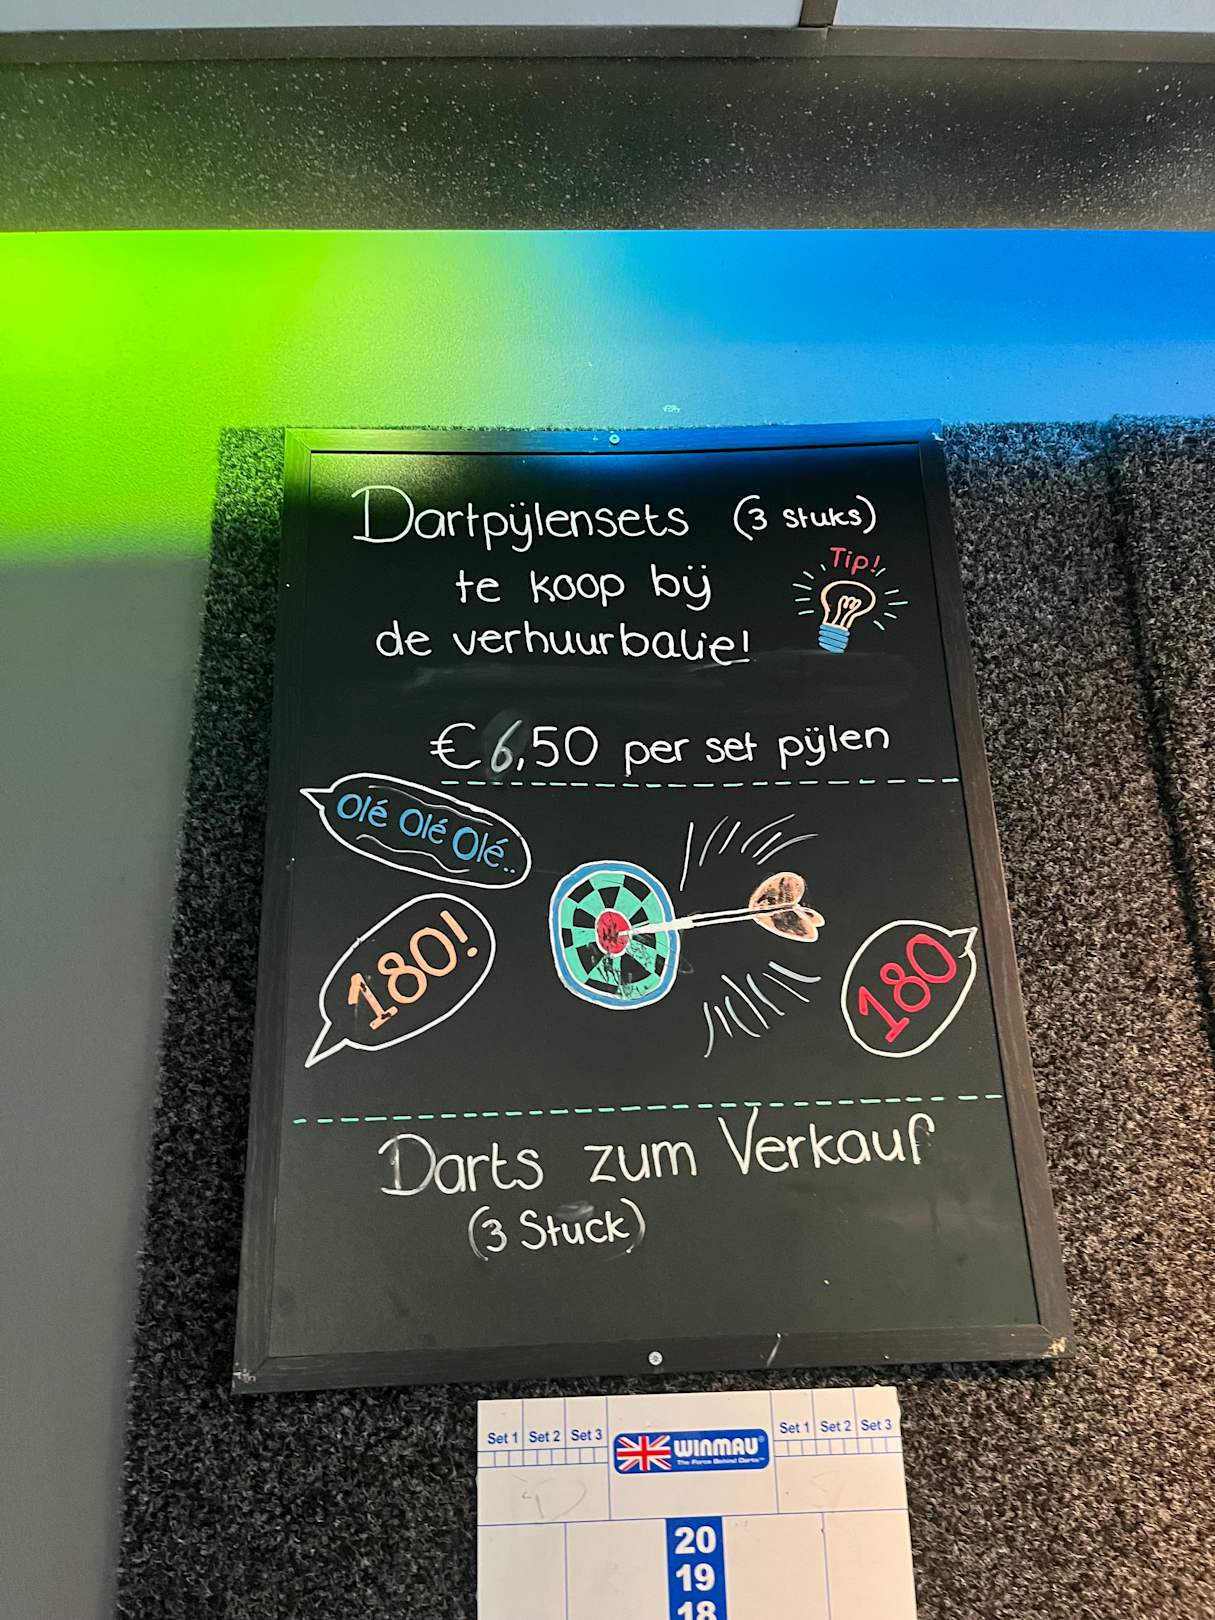 Dartpijlensets (3 stuks)
Tip!
te koop bij
de verhuurbalie!
€6,50 per set pijlen
Olé Olé Olé..
180!
180
Darts zum Verkauf
(3 Stuck)
Set 1 Set 2 Set 3
WINMAU®
The Force Behind Darts™
Set 1 Set 2 Set 3
20
19
18